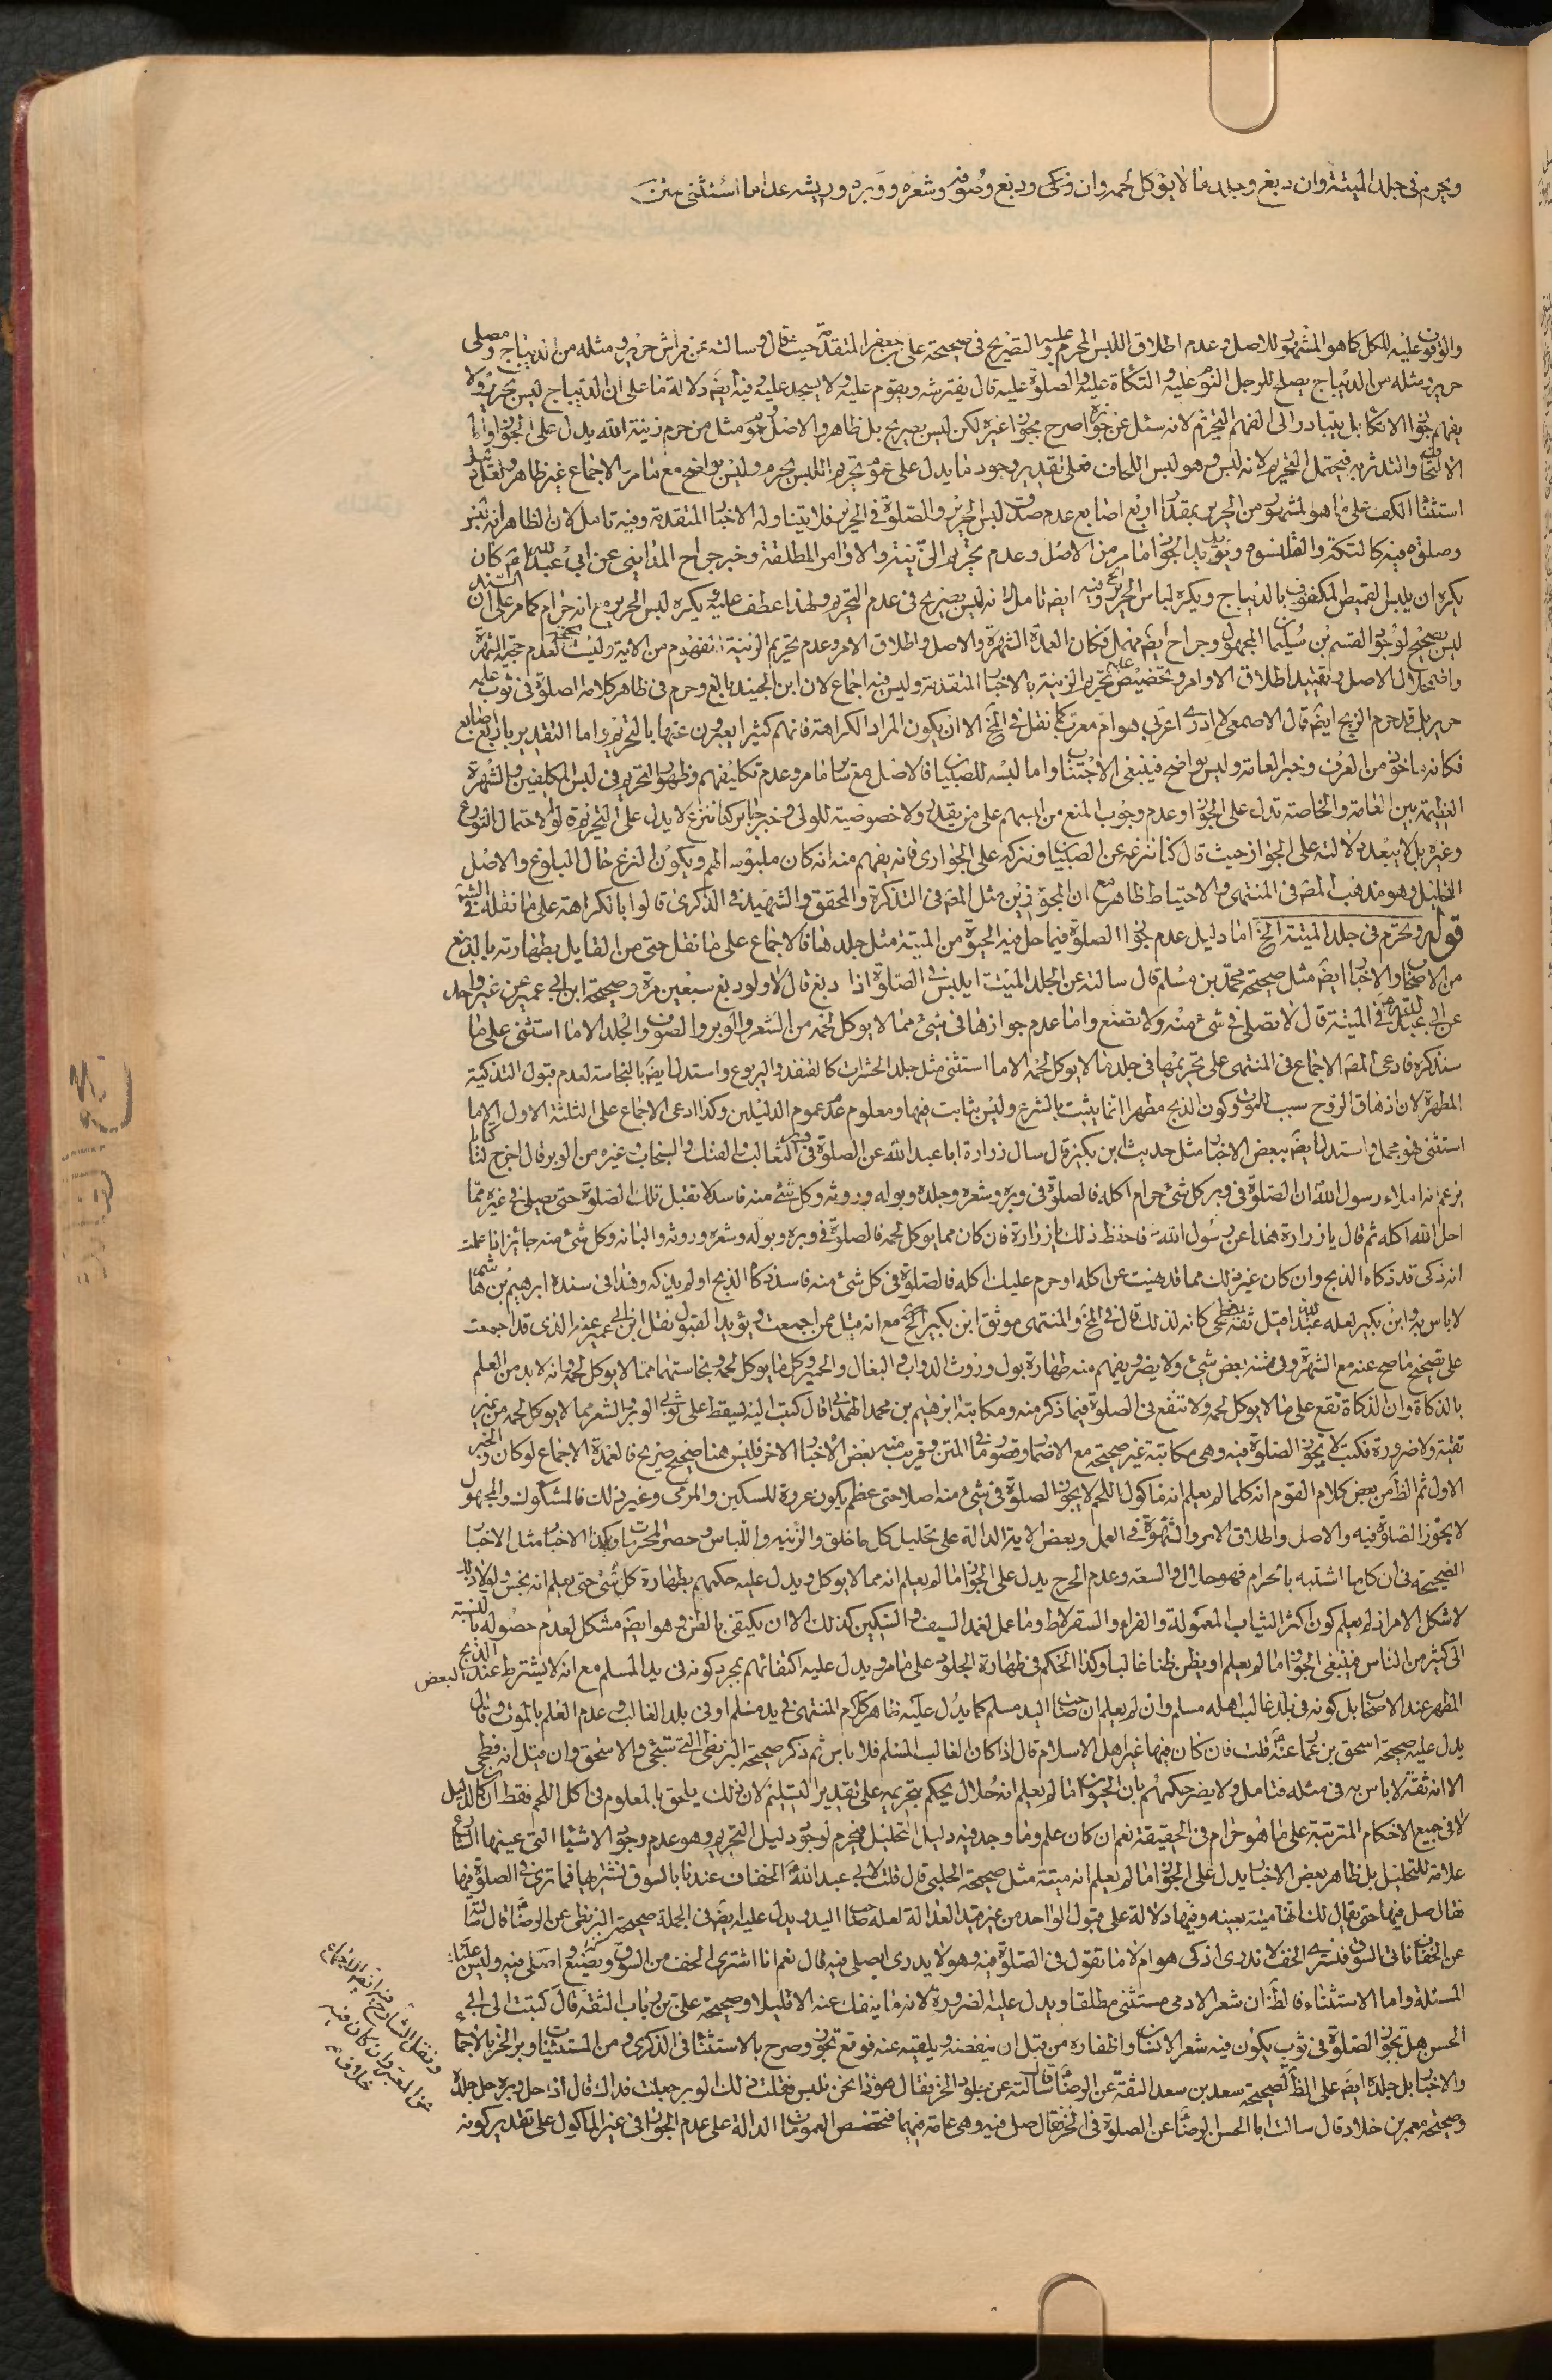 ويحرم في جلد الميتة وان دبغ وجلد ما لا يؤكل لحمه وان ذكى ودبغ وصوفه وشعره ووبره وريشه عدا ما استثنى
والوقوف عليه للكل كما هو المشهور للاصل وعدم اطلاق اللبس المحرم عليه والتصريح في صحيحة علي بن جعفر المتقدمة حيث قال وسالته عن فراش حرير ومثله من الديباج ومصلى
حرير ومثله من الديباج يصلح للرجل النوم عليه والتكأة عليه والصلوة عليه قال يفترشه ويقوم عليه ولا يسجد عليه وفيه ايضا دلالة ما على ان الديباج ليس بحرير ولا
يفهم جواز الاتكاء بل يتبادر الى الفهم التحريم لانه سئل عن جوازه صرح بجواز غيره لكن ليس بصريح بل ظاهر والاصل مثل من حرم زينة الله يدل على الجواز واما
الالتحاف والتدثر به فيحتمل التحريم لانه لبس وهو لبس اللحاف فعلى تقدير وجود ما يدل على عموم تحريم اللبس يحرم وليس بواضح مع ما مر الاجماع غير ظاهر ولعل
استثناء الكف على ما هو المشهور من الحرير بمقدار اربع اصابع عدم صدق لبس الحرير والصلوة في الحرير فلا يتناوله الاخبار المتقدمة وفيه تامل لان الظاهر انه لبس
وصلوة فيه كالتكة والقلنسوة ويؤيد الجواز ما مر من الاصل وعدم تحريم الزينة والاوامر المطلقة وخبر جراح المدايني عن ابي عبد الله انه كان
يكره ان يلبس القميص المكفوف بالديباج ويكره لباس الحرير وفيه ايضا تامل لانه ليس بصريح في عدم التحريم ولهذا عطف عليه ويكره لبس الحرير مع انه حرام كما مر على ان السند
ليس بصحيح لوجود القسم بن سليمان المجهول وجراح ايضا مهمل فكان العمدة الشهرة والاصل واطلاق الامر وعدم تحريم الزينة المفهوم من الاية وليست بحجة لعدم حجية الشهرة
واضمحلال الاصل وتقييد اطلاق الاوامر وتخصيص تحريم الزينة بالاخبار المتقدمة وليس فيه اجماع لان ابن الجنيد بالغ وحرم في ظاهر كلامه الصلوة في ثوب عليه
حرير بل قد حرم الزيج ايضا قال الاصمعي لا ادرى اعربي هو ام معرب كما نقل في المخ الا ان يكون المراد الكراهة فانهم كثيرا يعبرون عنها بالتحريم واما التقدير باربع اصابع
فكانه ماخوذ من العرف وخبر العامة وليس بواضح فينبغي الاجتناب واما لبسه للصبيان فالاصل مع سائر ما مر وعدم تكليفهم وظهور التحريم في لبس المكلفين والشهرة
العظيمة بين العامة والخاصة تدل على الجواز وعدم وجوب المنع من لبسهم على من يقدر ولا خصوصية للولى وخبر جابر كنا ننزع لا يدل على التحريم لاحتمال التورع
وغيره بل لا يبعد دلالته على الجواز حيث قال كنا ننزعه عن الصبيان ونتركه على الجواري فانه يفهم منه انه كان ملبوسهم ويكون النزع حال البلوغ والاصل
التحليل وهو مذهب المصنف في المنتهى والاحتياط ظاهر مع ان المجوزين مثل المص في التذكرة والمحقق والشهيد في الذكرى قالوا بالكراهة على ما نقله في الشرح
قوله وتحرم في جلد الميتة الخ اما دليل عدم جواز الصلوة فيما حل فيه الحيوة من الميتة مثل جلدها فالاجماع على ما نقل حتى من القايل بطهارته بالدبغ
من الاصحاب والاخبار ايضا مثل صحيحة محمد بن مسلم قال سالته عن الجلد الميت ايلبس في الصلوة اذا دبغ قال لا ولو دبغ سبعين مرة وصحيحة ابن ابي عمير عن غير واحد
عن ابي عبد الله في الميتة قال لا تصلي في شيء منه ولا شسع واما عدم جوازها في شيء مما لا يوكل لحمه من الشعر والوبر والصوف والجلد الا ما استثنى على ما
سنذكره فادعى المص الاجماع في المنتهى على تحريمها في جلد ما لا يوكل لحمه الا ما استثنى مثل جلد الحشرات كالقنفذ واليربوع واستدل ايضا بالنجاسة لعدم قبول التذكية
المطهرة لان ذهاق الروح سبب للموت وكون الذبح مطهرا انما يثبت بالشرع وليس بثابت فيها ومعلوم عدم عموم الدليلين وكذا ادعى الاجماع على الثلثة الاول الا ما
استثنى فهو مجمل واستدل ايضا ببعض الاخبار مثل حديث ابن بكير قال سال زرارة ابا عبد الله عن الصلوة في الثعالب والفنك والسنجاب وغيره من الوبر قال اخرج لنا كتابا
يزعم انه املاء رسول الله ان الصلوة في وبر كل شيء حرام اكله فالصلوة في وبره وشعره وجلده وبوله وروثه وكل شيء منه فاسد لا تقبل تلك الصلوة حتى يصلي في غيره مما
احل الله اكله ثم قال يا زرارة هذا عن رسول الله فاحفظ ذلك يا زرارة فان كان مما يوكل لحمه فالصلوة في وبره وبوله وشعره وروثه والبانه وكل شيء منه جائز اذا علمت
انه ذكي قد ذكاه الذبح وان كان غير ذلك مما قد نهيت عن اكله او حرم عليك اكله فالصلوة في كل شيء منه فاسد ذكاه الذبح او لم يذكه وهذا في سنده ابرهيم بن هاشم
لا باس به وابن بكير لعله عبد الله قيل ثقة فطحي كانه لذلك قال في المخ والمنتهى موثق ابن بكير الخ مع انه قيل ممن اجمعت ويؤيد القبول نقل ابن ابي عمير عنه الذي قد اجمعت
على تصحيح ما صح عنه مع الشهرة وفي متنه بعض شيء ولا يضر ويفهم منه طهارة بول وروث الدواب والبغال والحمير وكل ما يوكل لحمه ونجاستهما مما لا يوكل لحمه وانه لا بد من العلم
بالذكاة وان الذكاة تقع على ما لا يوكل لحمه ولا تنفع في الصلوة فيما ذكر منه ومكاتبة ابرهيم بن محمد الهمداني قال كتبت اليه يسقط على ثوبي الوبر والشعر مما لا يوكل لحمه من غير
تقية ولا ضرورة فكتب لا يجوز الصلوة فيه وهي مكاتبة غير صحيحة مع الاضمار وقصور ما في المتن وقريب منه بعض الاخبار الاخر فليس هنا صحيح صريح فالعمدة الاجماع لو كان والخبر
الاول ثم الظ من بعض كلام القوم انه كلما لم يعلم انه ماكول اللحم لا يجوز الصلوة في شيء منه اصلا حتى عظم يكون عروة للسكين والمرمى وغير ذلك فالمشكوك والمجهول
لا يجوز الصلوة فيه والاصل واطلاق الامر والشهرة في العمل وبعض الاية الدالة على تحليل كل ما خلق والزينة واللباس وحصر المحرمات وكذا الاخبار مثل الاخبار
الصحيحة في ان كلما اشتبه بالحرام فهو حلال والسعة وعدم الحرج يدل على الجواز ما لم يعلم انه مما لا يوكل ويدل عليه حكمهم بطهارة كل شيء حتى يعلم انه نجس ولولا ذلك
لاشكل الامر اذ لم يعلم كون اكثر الثياب المعمولة والفراء والسقرلاط وما عمل لغمد السيف والسكين كذلك الا ان يكتفى بالظن وهو ايضا مشكل لعدم حصوله بالنسبة
الى كثير من الناس فينبغي الجواز ما لم يعلم او يظن ظنا غالبا وكذا الحكم في طهارة الجلود على ما مر ويدل عليه اكتفائهم بمجرد كونه في يد المسلم مع انه لا يشترط عند البعض الذبح
المطهر عند الاصحاب بل كونه في بلد غالب اهله مسلم وان لم يعلم ان صاحب اليد مسلم كما يدل عليه ظاهر كلام المنتهى في يد مسلم او في بلد الغالب وعدم العلم بالموت وقال
يدل عليه صحيحة اسحق بن عمار عنه قلت فان كان فيها غير اهل الاسلام قال اذا كان الغالب المسلم فلا باس ثم ذكر صحيحة البزنطي التي ستجئ والاسحق وان قيل انه فطحي
الا انه ثقة لا باس به في مثله فتامل ولا يضر حكمهم بان الحيوان ما لم يعلم انه حلال يحكم بتحريمه على تقدير التسليم لان ذلك يلحق بالمعلوم في اكل اللحم فقط ان كان الدليل
لا في جميع الاحكام المترتبة على ما هو حرام في الحقيقة نعم ان كان علم وما وجد فيه دليل التحليل فيحرم لوجود دليل التحريم وهو عدم وجود الاشياء التي عينها الشارع
علامة للتحليل بل ظاهر بعض الاخبار يدل على الجواز ما لم يعلم انه ميتة مثل صحيحة الحلبي قال قلت لابي عبد الله الخفاف عندنا بالسوق نشتريها فما ترى في الصلوة فيها
فقال صل فيها حتى يقال لك انها ميتة بعينه وفيها دلالة على قبول الواحد من غير قيد العدالة لعله صاحب اليد ويدل عليه ايضا في الجملة صحيحة البزنطي عن الرضا قال سالته
عن الخفاف ناتي السوق فنشترى الخف لا ندري اذكي هو ام لا ما تقول في الصلوة فيه وهو لا يدري ايصلي فيه قال نعم انا اشتري الخف من السوق ويصنع لي واصلي فيه وليس عليكم
المسئلة واما الاستثناء فالظ ان شعر الادمي مستثنى مطلقا ويدل عليه الضرورة لانه ما ينفك عنه الا قليلا وصحيحة علي بن ريان الثقة قال كتبت الى ابي
الحسن هل تجوز الصلوة في ثوب يكون فيه شعر الانسان واظفاره من قبل ان ينفضه ويلقيه عنه فوقع تجوز وصرح بالاستثناء في الذكرى ومن المستثنيات وبر الخز بالاجماع
والاخبار بل جلده ايضا على الظ لصحيحة سعد بن سعد الثقة عن الرضا قال سالته عن جلود الخز فقال هوذا نحن نلبس فقلت ذلك الوبر جعلت فداك قال اذا حل وبره حل جلده
وصحيحة معمر بن خلاد قال سالت ابا الحسن الرضا عن الصلوة في الخز فقال صل فيه وهي عامة فيهما فتخصص العمومات الدالة على عدم الجواز في غير الماكول على تقدير كونه
ونقل الشارح فيه ايضا الاجماع